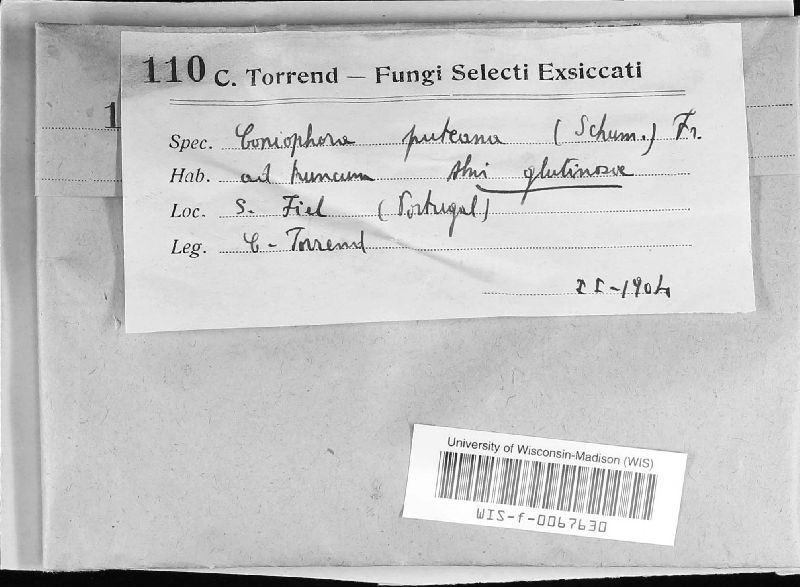 110 C. Torrend — Fungi Selecti Exsiccati
1
Spec. Coniophora puteana (Schum.) Fr.
Hab. ad truncum Alni glutinosae
Loc. S. Fiel (Portugal)
Leg. C. Torrend
II-1904
University of Wisconsin-Madison (WIS)
WIS-f-0067630